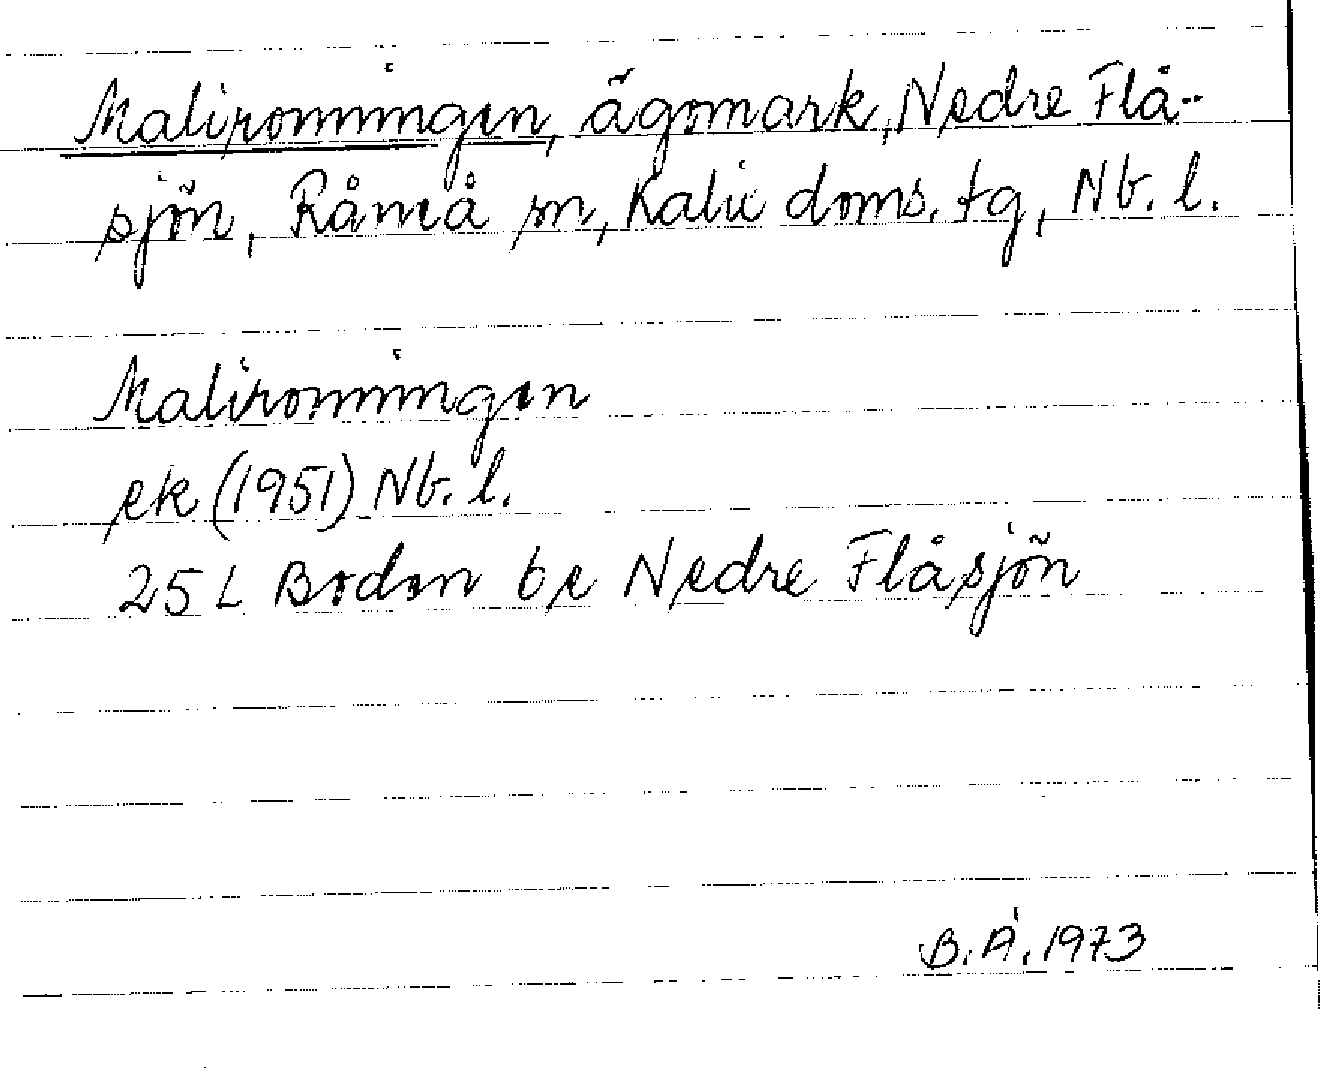 Malironningen, ägomark, Nedre Flå-
sjön, Råneå sn, Kalix doms. tg, Nb. l.
Malironningen
ek (1951) Nb. l.
25 L Boden 6e Nedre Flåsjön
B.Å. 1973